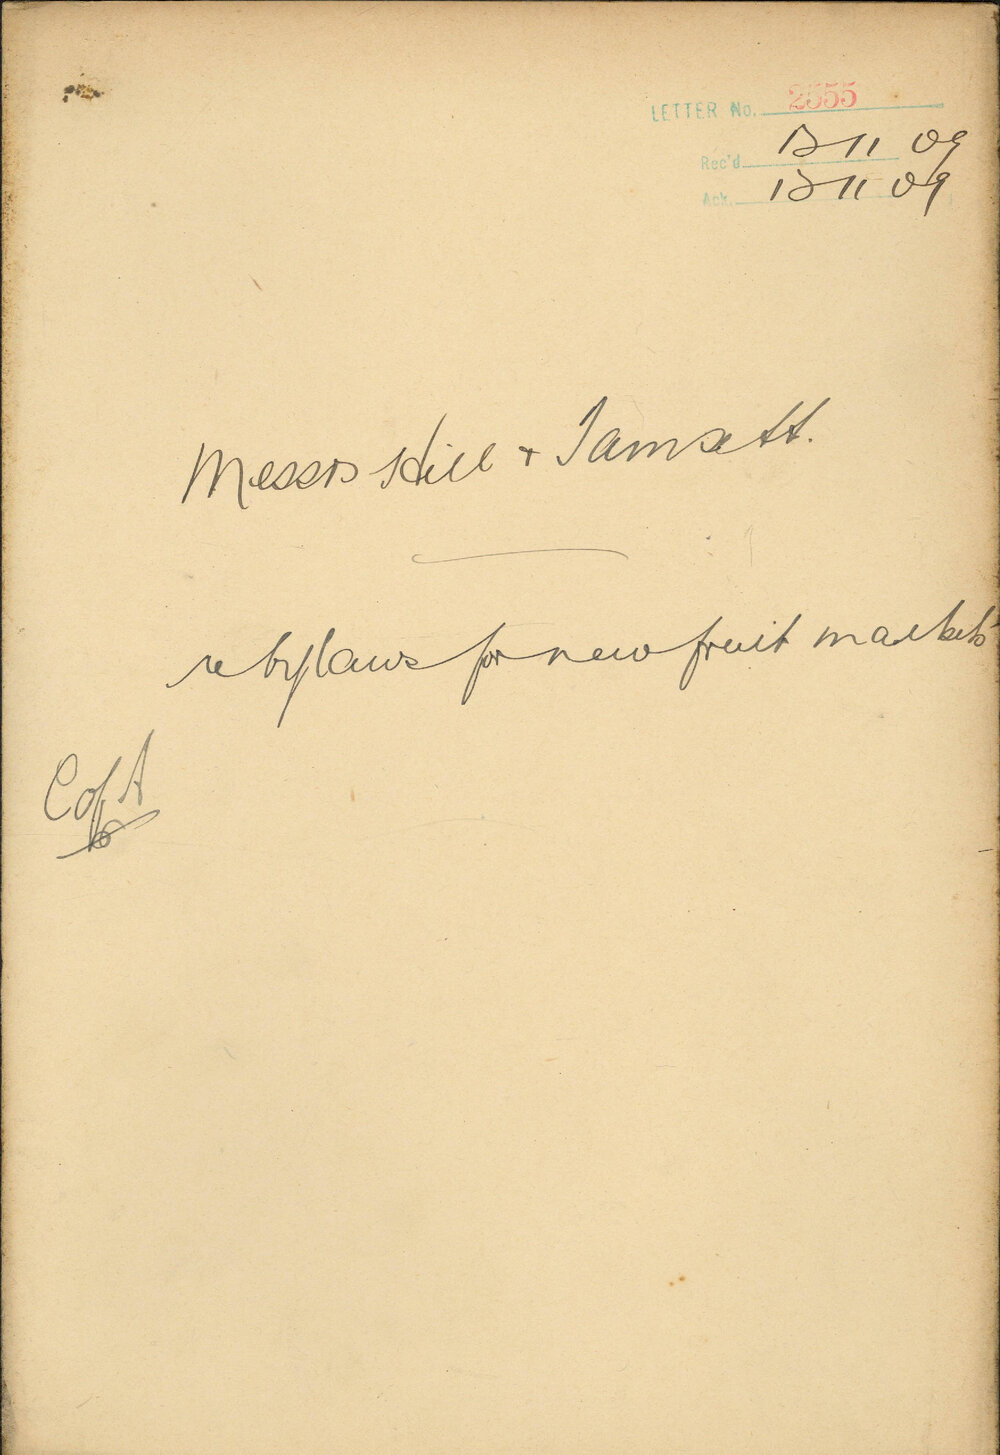 LETTER No. 2555
Rec'd 13 11 09
Ack. 13 11 09
Messrs Hill + Tamsett.
re bylaws for new fruit markets
C of A